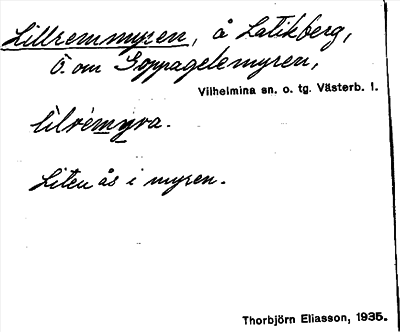 Lillremmyren, å Latikberg,
Ö. om Goppagelemyren,
Vilhelmina sn. o. tg. Västerb. l.
lìlrémy̲ra.
Liten ås i myren.
Thorbjörn Eliasson, 1935.